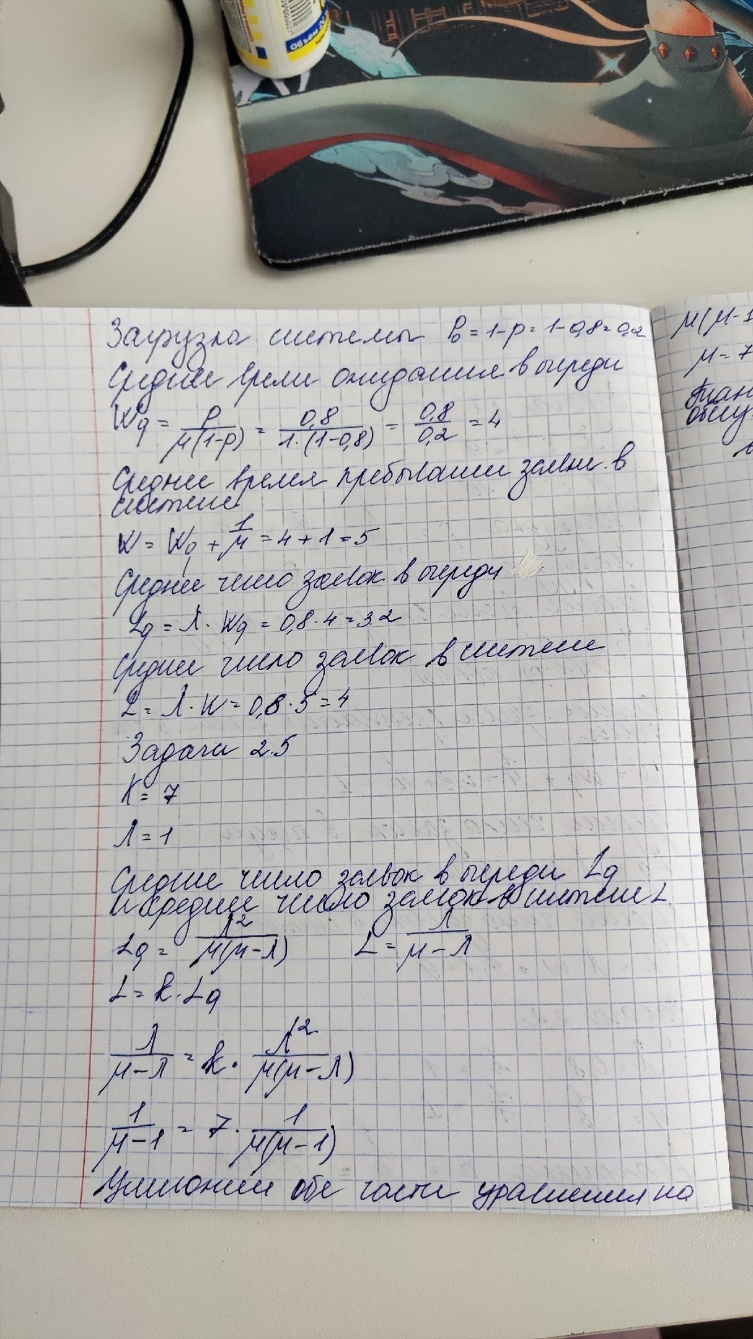 Загрузка системы P₀ = 1-p = 1-0,8 = 0,2
Среднее время ожидания в очереди
Wq = p/μ(1-p) = 0,8/1·(1-0,8) = 0,8/0,2 = 4
Среднее время пребывания заявки в
системе
W = Wq + 1/μ = 4 + 1 = 5
Среднее число заявок в очереди
Lq = λ · Wq = 0,8 · 4 = 3.2
Среднее число заявок в системе
L = λ · W = 0,8 · 5 = 4
Задача 2.5
K = 7
λ = 1
Среднее число заявок в очереди Lq
и среднее число заявок в системе L
Lq = λ²/μ(μ-λ) L = λ/μ-λ
L = k · Lq
λ/μ-λ = k · λ²/μ(μ-λ)
1/μ-1 = 7 · 1/μ(μ-1)
Умножим обе части уравнения на
μ(μ-1
μ = 7
Объём